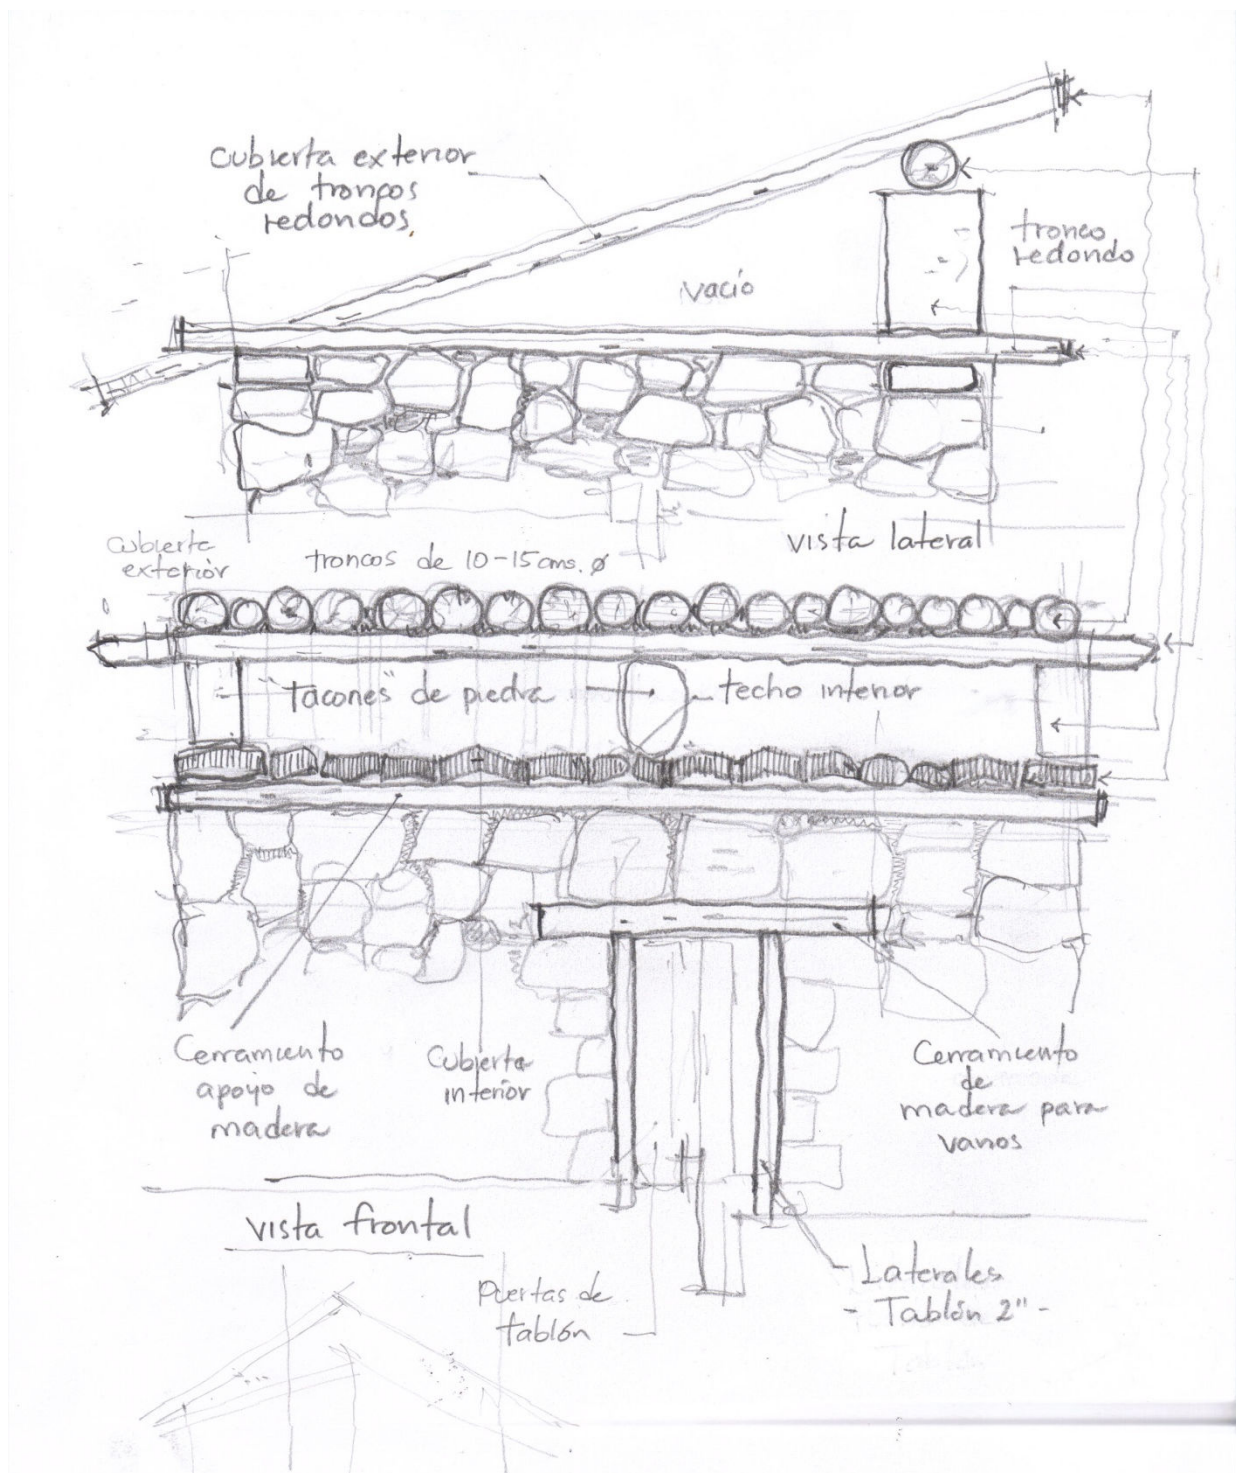 cubierta exterior
de troncos
redondos.
tronco
redondo
vacío
vista lateral
cubierta
exterior
troncos de 10-15 cms. ø
"tacones" de piedra
techo interior
Cerramiento
apoyo de
madera
Cubierta
interior
Cerramiento
de
madera para
vanos
vista frontal
puertas de
tablón
Laterales
- Tablón 2" -